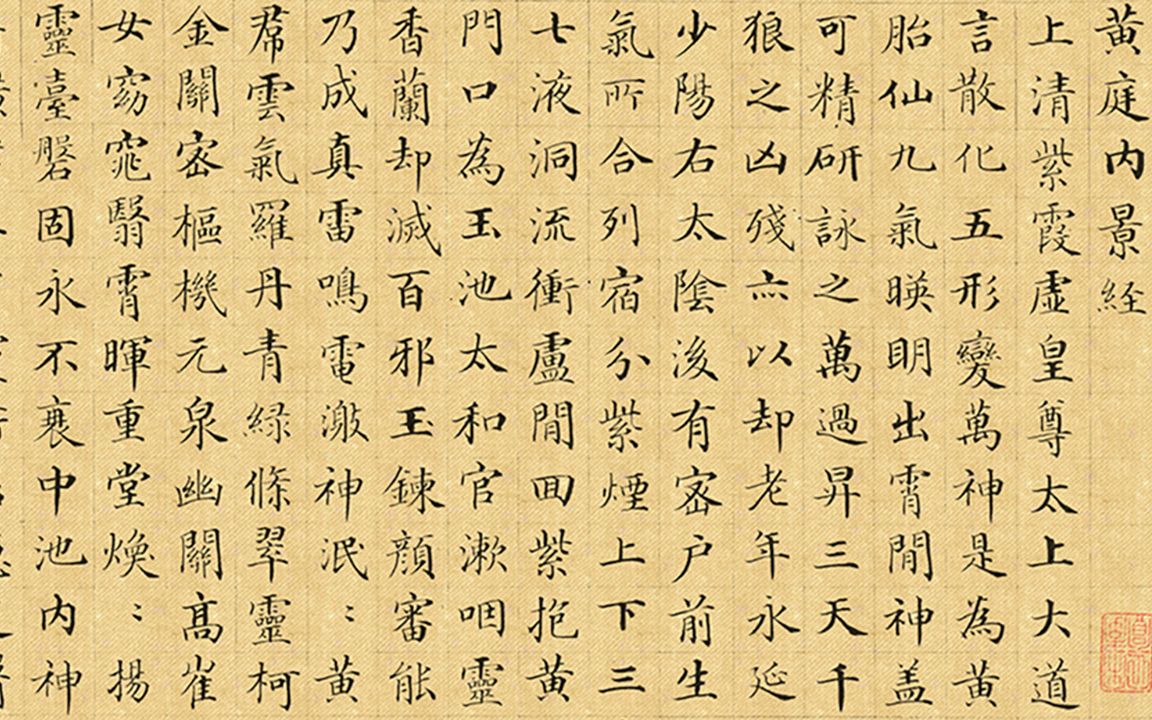 黄庭内景経
上清紫霞虛皇尊太上大道
言散化五形變萬神是為黄
胎仙九氣暎明出霄閒神盖
可精研詠之萬過昇三天千
狼之凶殘亦以却老年永延
少陽右太陰後有密户前生
氣所合列宿分紫煙上下三
七液洞流衝盧閒回紫抱黄
門口為玉池太和官漱咽靈
香蘭却滅百邪玉鍊顔審能
乃成真雷鳴電激神泯〻黄
羣雲氣羅丹青緑條翠靈柯
金關密樞機元泉幽關髙崔
女窈窕翳霄暉重堂煥〻揚
靈臺磐固永不衰中池内神